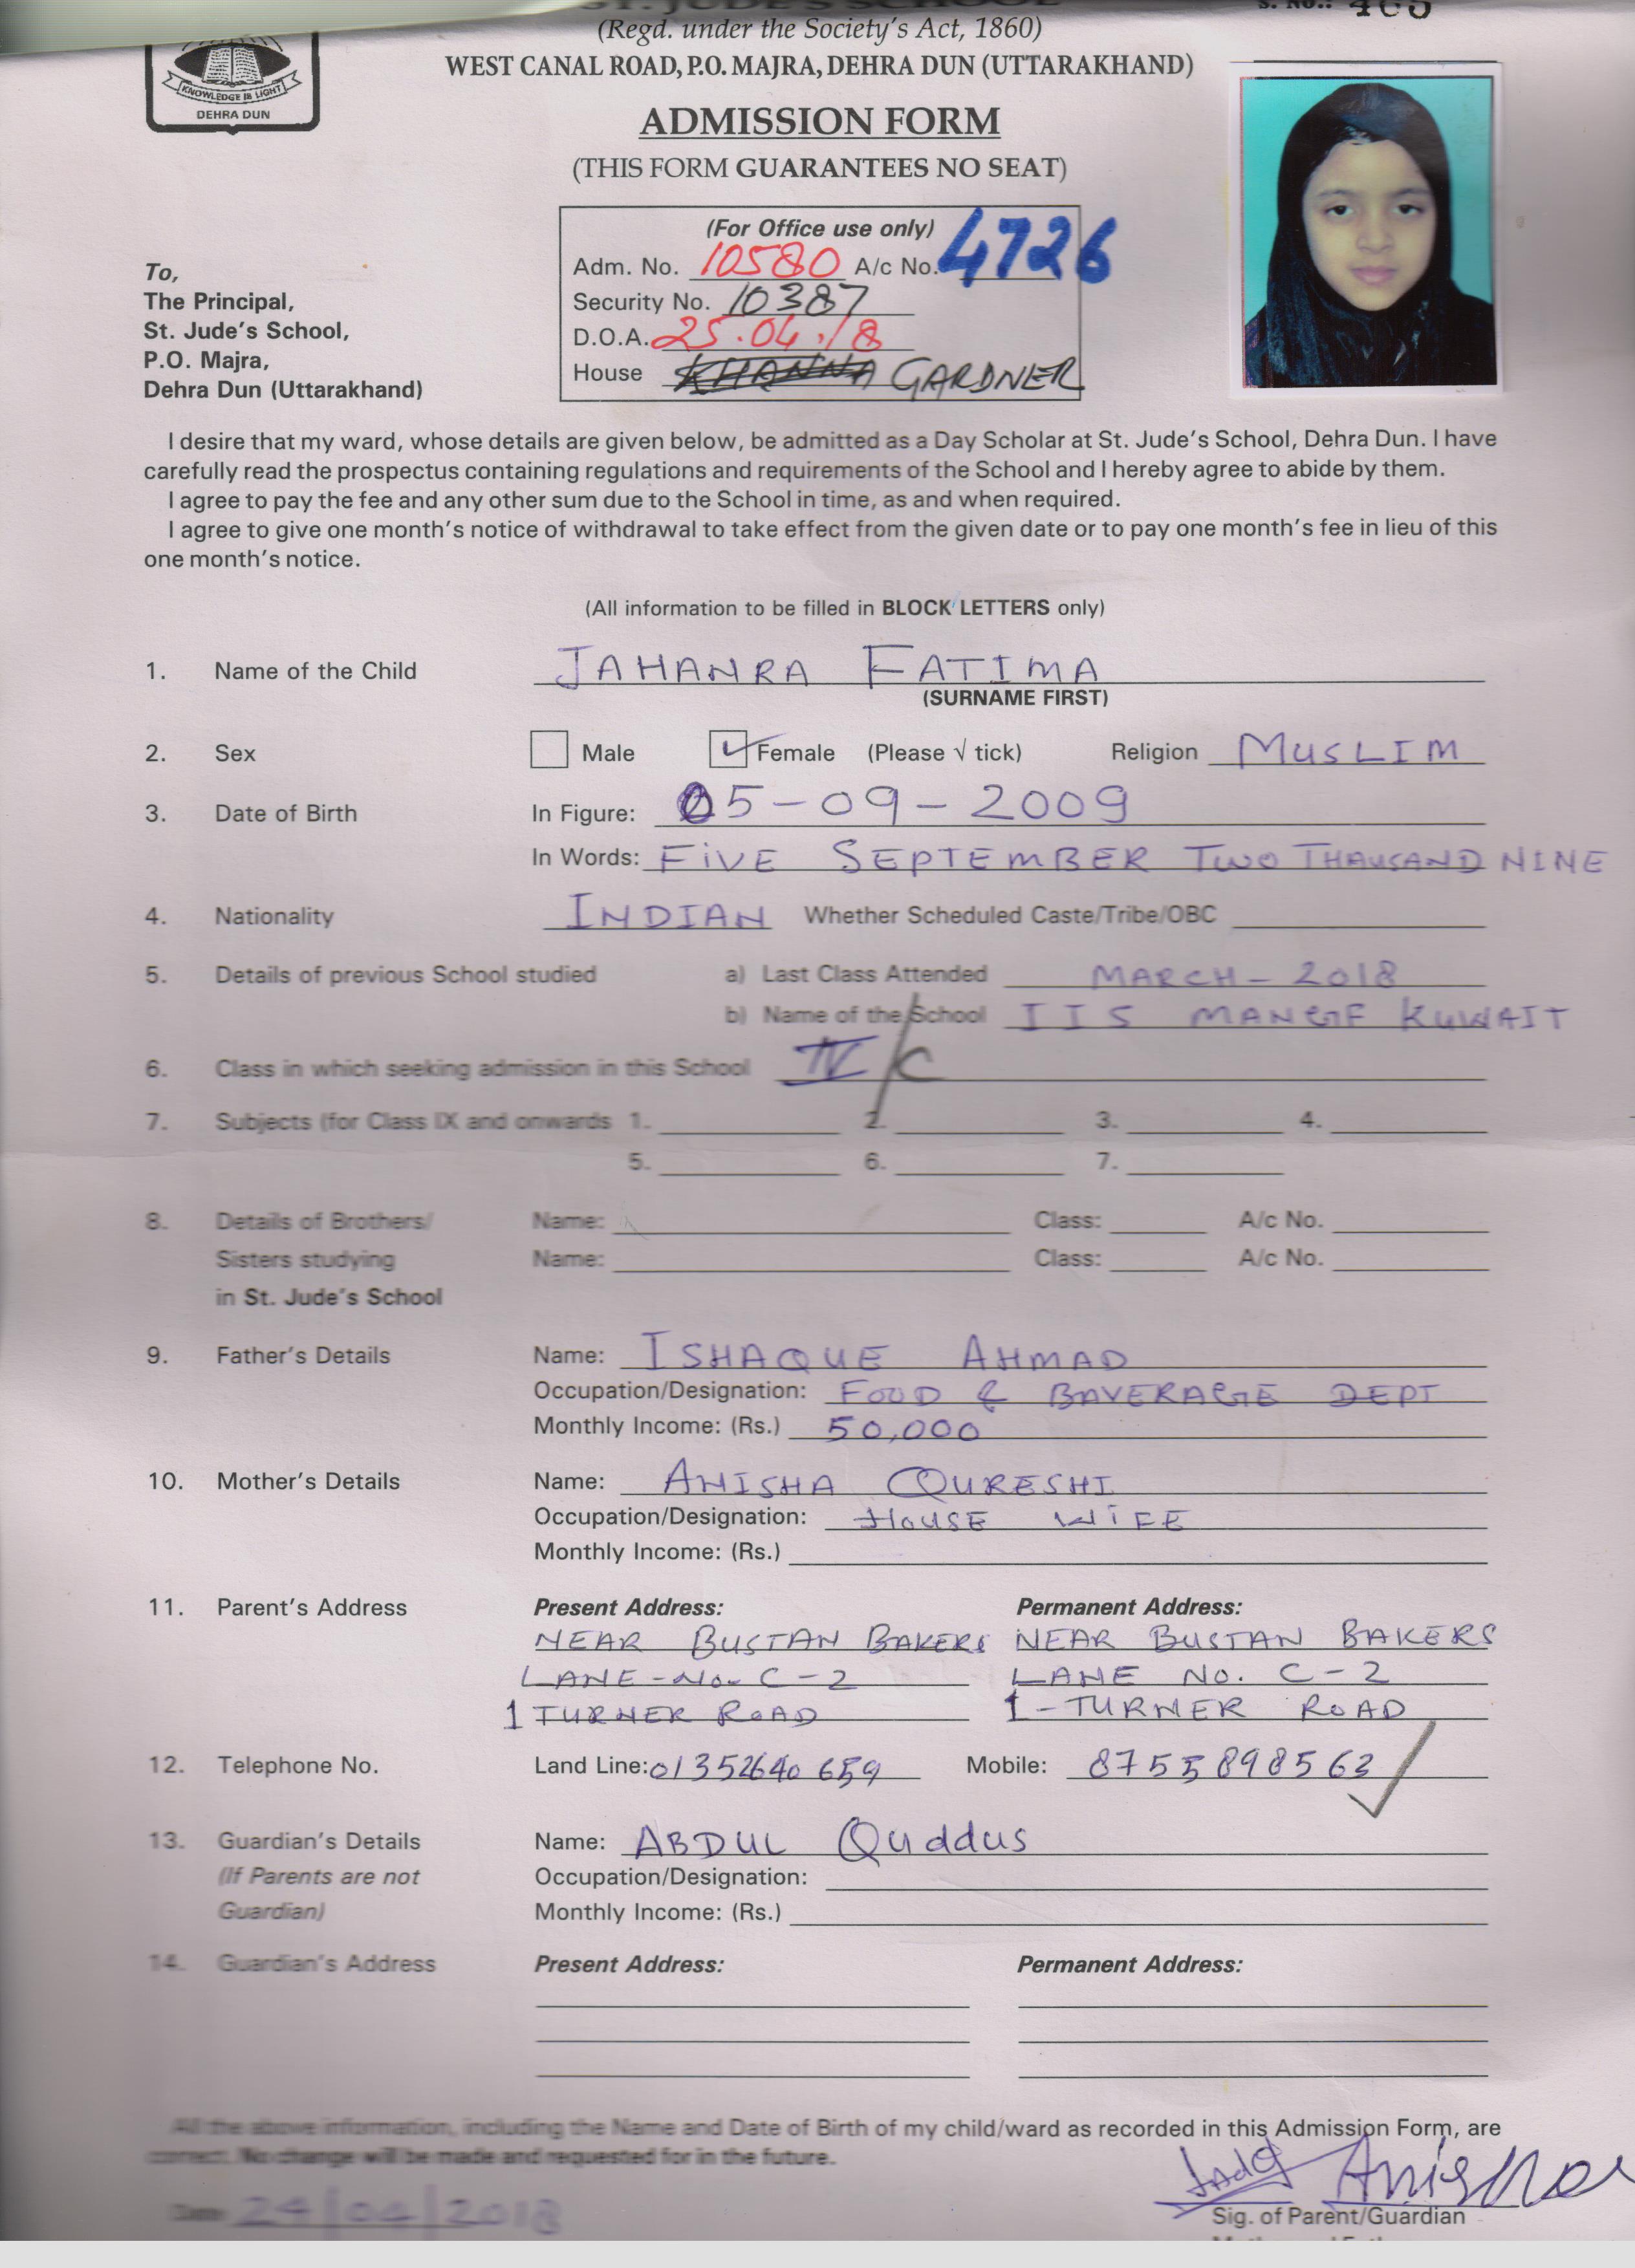 ST. JUDE'S SCHOOL
S. No.: 465
(Regd. under the Society's Act, 1860)
WEST CANAL ROAD, P.O. MAJRA, DEHRA DUN (UTTARAKHAND)
KNOWLEDGE IS LIGHT
DEHRA DUN
ADMISSION FORM
(THIS FORM GUARANTEES NO SEAT)
(For Office use only)
Adm. No. 10580 A/c No. 4726
Security No. 10387
D.O.A. 25.04.18
House KHANNA GARDNER
To,
The Principal,
St. Jude's School,
P.O. Majra,
Dehra Dun (Uttarakhand)
I desire that my ward, whose details are given below, be admitted as a Day Scholar at St. Jude's School, Dehra Dun. I have
carefully read the prospectus containing regulations and requirements of the School and I hereby agree to abide by them.
I agree to pay the fee and any other sum due to the School in time, as and when required.
I agree to give one month's notice of withdrawal to take effect from the given date or to pay one month's fee in lieu of this
one month's notice.
(All information to be filled in BLOCK LETTERS only)
1. Name of the Child JAHANRA FATIMA
(SURNAME FIRST)
2. Sex Male ✓ Female (Please √ tick) Religion MUSLIM
3. Date of Birth In Figure: 05-09-2009
In Words: FIVE SEPTEMBER TWO THAUSAND NINE
4. Nationality INDIAN Whether Scheduled Caste/Tribe/OBC
5. Details of previous School studied a) Last Class Attended MARCH-2018
b) Name of the School IIS MANGF KUWAIT
6. Class in which seeking admission in this School IV/C
7. Subjects (for Class IX and onwards 1. 2. 3. 4.
5. 6. 7.
8. Details of Brothers/ Name: Class: A/c No.
Sisters studying Name: Class: A/c No.
in St. Jude's School
9. Father's Details Name: ISHAQUE AHMAD
Occupation/Designation: FOOD & BAVERAGE DEPT
Monthly Income: (Rs.) 50,000
10. Mother's Details Name: ANISHA QURESHI
Occupation/Designation: HOUSE WIFE
Monthly Income: (Rs.)
11. Parent's Address Present Address: Permanent Address:
NEAR BUSTAN BAKERS NEAR BUSTAN BAKERS
LANE-No. C-2 LANE No. C-2
1 TURNER ROAD 1-TURNER ROAD
12. Telephone No. Land Line: 01352640659 Mobile: 8755898563
13. Guardian's Details Name: ABDUL Quddus
(If Parents are not Occupation/Designation:
Guardian) Monthly Income: (Rs.)
14. Guardian's Address Present Address: Permanent Address:
All the above information, including the Name and Date of Birth of my child/ward as recorded in this Admission Form, are
correct. No change will be made and requested for in the future.
Date 24/04/2018
Sig. of Parent/Guardian